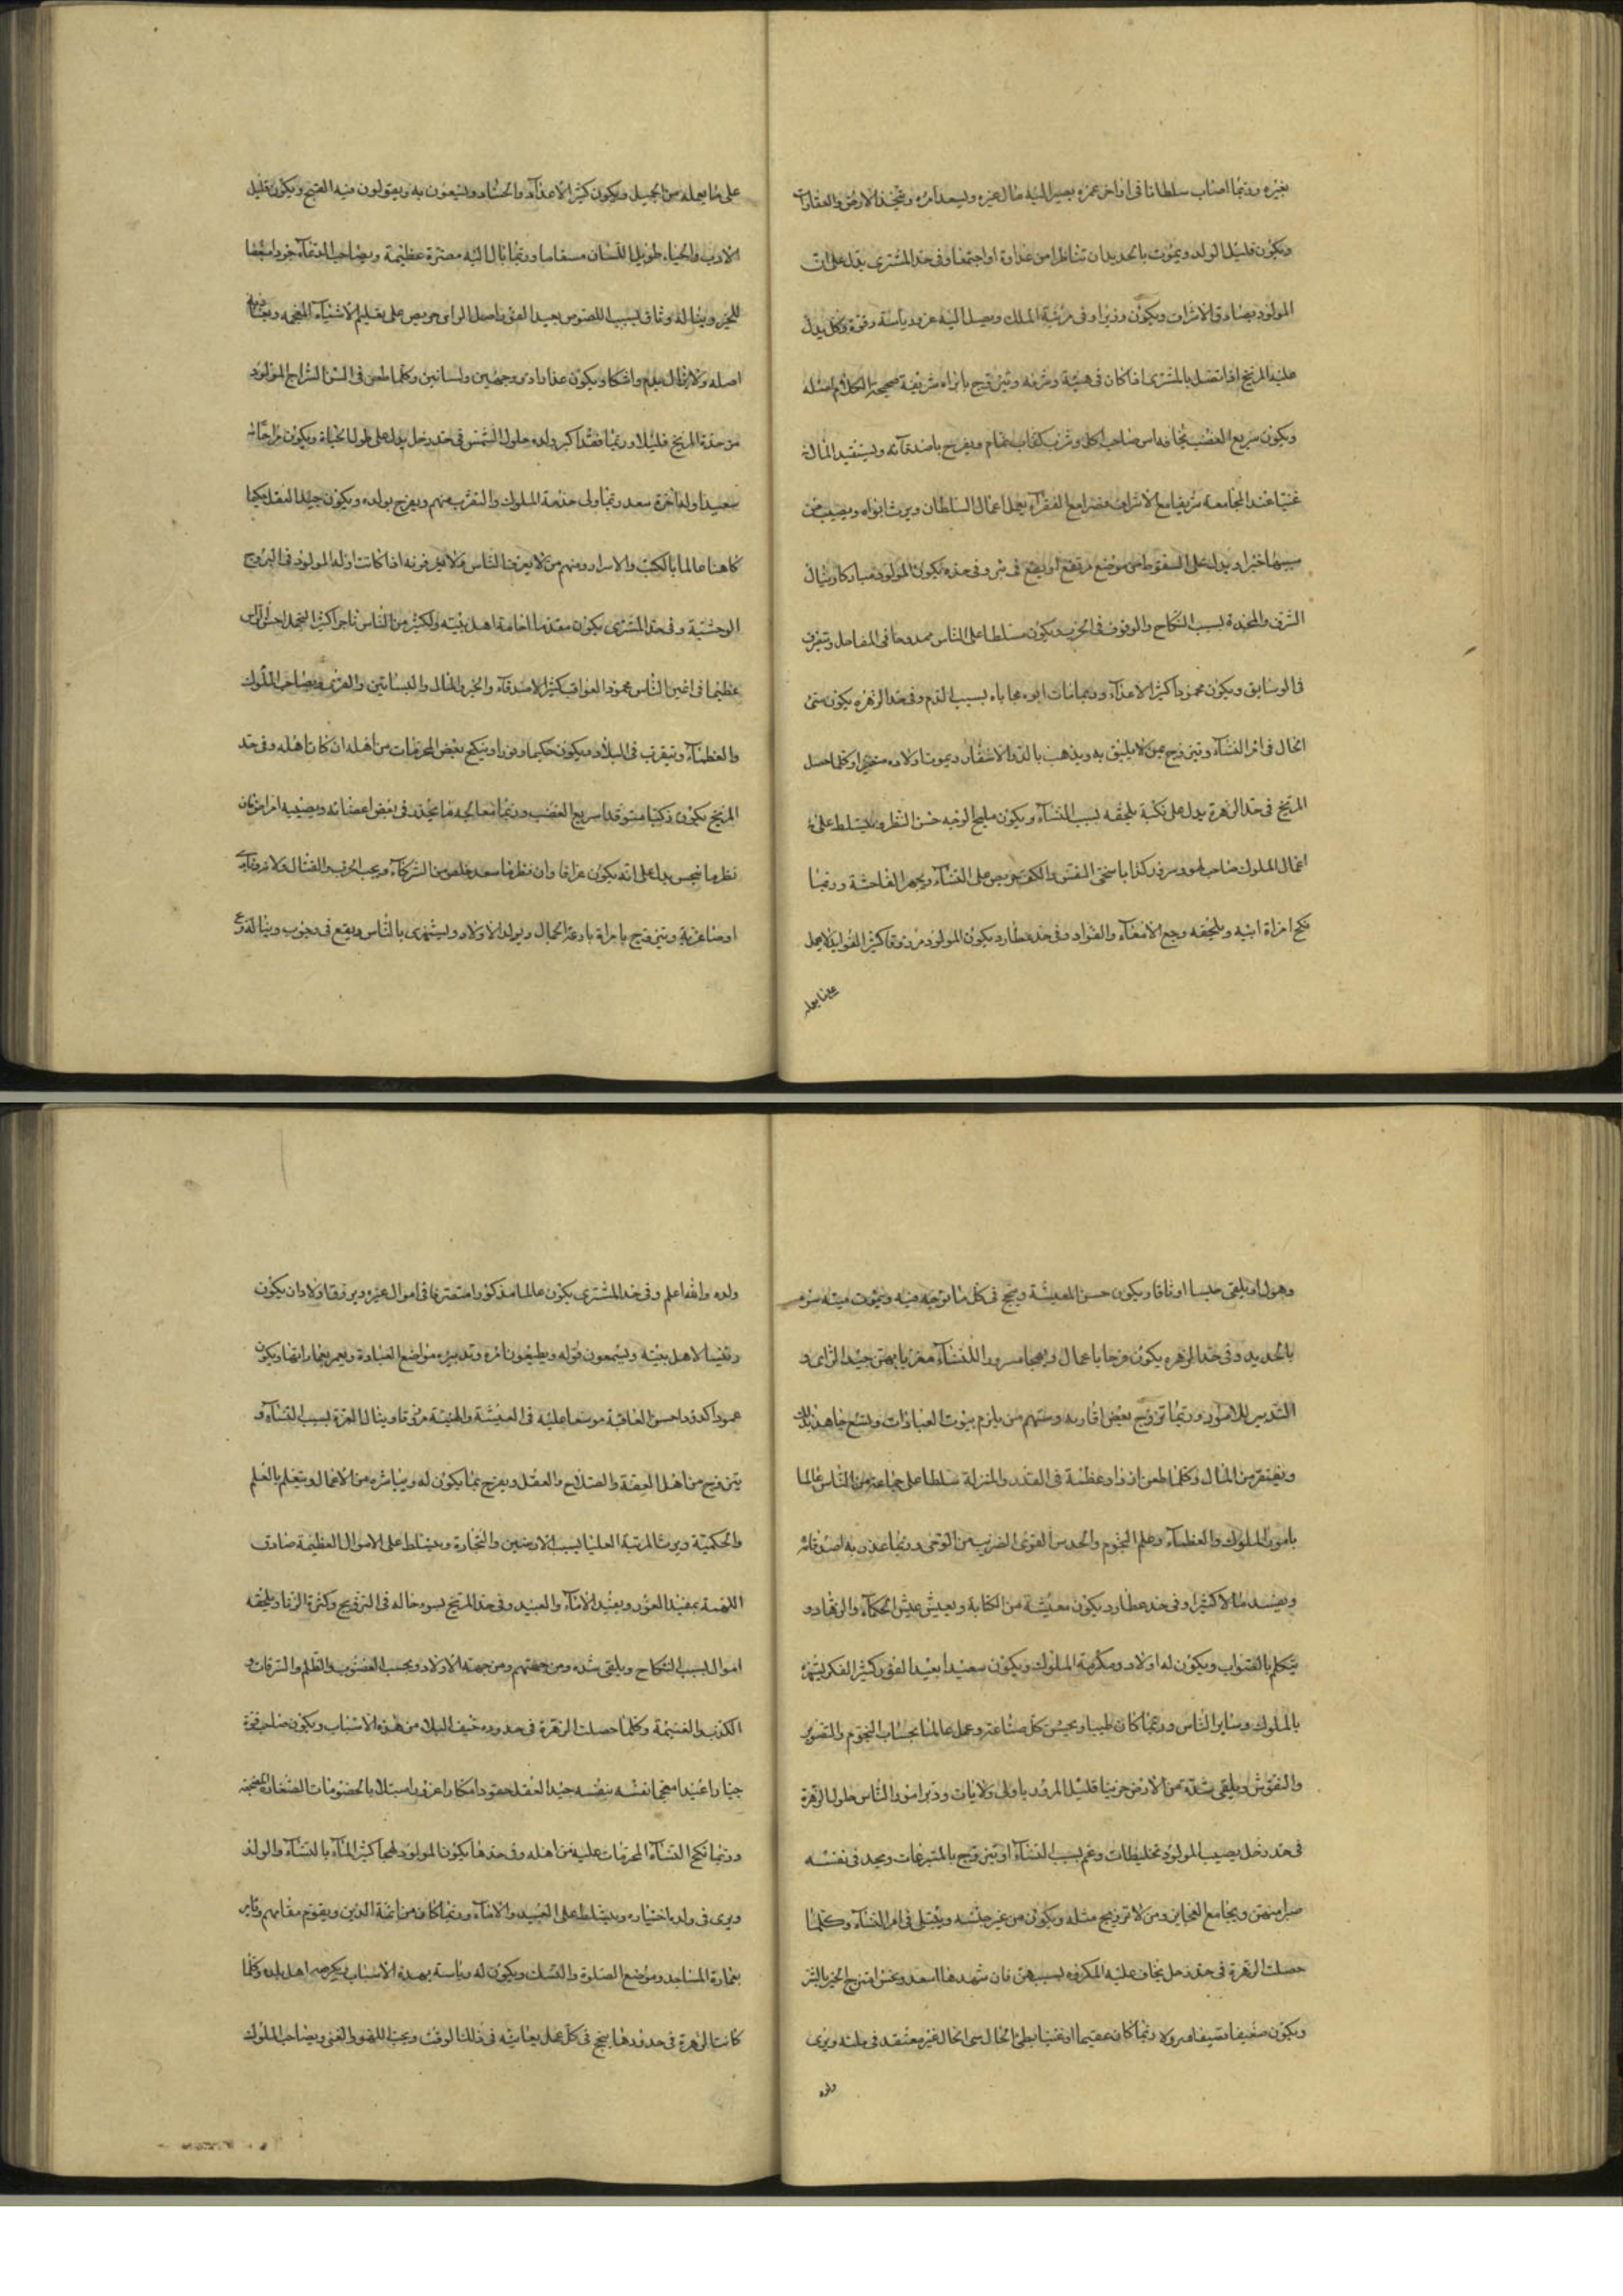 بغيره وربما اصاب سلطانا في اواخر عمره يصير اليه مال غيره ويسعد امره ويتخذ الارض والعقارات
ويكون قليل الولد ويموت بالحديد ان تناظرا من عداوة او اجتمعا وفي حد المشتري يدل على ان
المولود يصادق الاشراف ويكون وزيرا وفي مرتبة الملك ويصل اليه عز ورياسة وقوة وكل يدل
عليه المريخ اذا اتصل بالمشتري اذا كان في هيئة وشرفه ويتزوج بامراة شريفة صحيحة الكلام اصله
ويكون سريع الغضب صاحب اكل وشرب كذاب نمام ويفرح باصدقائه ويستفيد المال
غنيا عند المجامعة شريفا مع الاشراف مضرا مع الفقرآء يعمل اعمال السلطان ويرث ابواه ويصيب من
سببهما خيرا ويدل على السقوط من موضع مرتفع او يقع في بئر وفي حده يكون المولود مباركا وينال
الشرف والمجد بسبب النكاح والوقوف في الحرب ويكون مسلطا على الناس ممدوحا في المفاصل ويعرف
في الوسابق ويكون محمودا كثير الاعدآء وربما مات ابوه مجاباه بسبب الدم وفي حد الزهره يكون سئ
الحال في امر النسآء ويتزوج بمن لا يليق به ويذهب بالذ والاسفار ويموت اولاده وكلما حصل
المريخ في حد الزهرة يدل على نكبة يلحقه بسبب النسآء ويكون مليح الوجه حسن النظر ويتسلط على
اعمال الملوك صاحب لهو وسرور كذابا سخي النفس والكف حريص على النسآء ويجهر الفاحشة وربما
نكح امراة ابيه ويلحقه وجع الامعآء والفواد وفي حد عطارد يكون المولود مرزوقا كثير الفوايد لا يحمل
على ما يعمله من الجميل ويكون كثير الاعدآء والحساد ويسعون به ويقولون فيه القبيح ويكون قليل
الادب والحياء طويل اللسان مسقاما وربما ينال اليه مضرة عظيمة ويصاحب القدمآء جوادا مبغضا
للخير ويناله وثاق بسبب اللصوص بعيد الغور فاضل الراى حريص على تعليم الاشيآء
اصله ولا يزال يدم واشكا ويكون غدارا ذى وجهين ولسانين وكلما طعن في السن السراج المولود
من حدة المريخ قليلا وربما فقد اكبر ولده حلول الشمس في حد زحل يدل على طول الحياة ويكون
سعيدا ولفاخرة سعد وربما ولى خدمة الملوك والتقرب منهم ويفرح بولده ويكون جيد العقل حكيما
كاهنا عالما بالكتب والاسرار ومنهم من لا يعرف الناس ولا يعرفونه اذا كانت ازلة المولود في البروج
الوحشية وفي حد المشترى يكون مقدما اخامة اهل بيته ولكثير من الناس تاجرا كثير التجمل احسن
عظيما في اعين الناس محمود العواقب كثير الاصدقآء والخير والمال والبساتين والقرى ويصاحب الملوك
والعظمآء ويتقرب في البلاد ويكون حكيما وزورا وينكح بعض المحرمات من اهله ان كان تاهله وفي حد
المريخ يكون ذكيا متوقدا سريع الغضب وربما معالجه ما يحدث في بعض اعضائه ويصيبه امراض فان
نظرها نحس يدل على انه يكون عرافا وان نظرها سعد خلص من الشركآء ويحب الحرب والقتال
او صناعة ويتزوج بامراة بارعة الجمال ويولد الاولاد ويستهزى بالناس ويقع في وينا له
وهو اويلقى حبسا او ثاقا ويكون حسن المعيشة وينجح في كل ما توجه فيه ويموت ميته سوء
بالحديد وفي حد الزهره يكون فرحا باعمال ومعجبا مسرورا للنسآء مغريا بهن جيد الراى و
التدبير للامور وربما تزوج بعض اقاربه ومنهم من يلزم بيوت العبادات ويتسع جاهه بذلك
ويفتقر من المال وكلما طعن ازداد عظمة في القدر والمنزلة سلطا على جماعة من الناس عالما
بامور الملوك والعظمآء وعلم النجوم والحدس القوى الضرب من الوحى وربما غدر به اصدقائه
ويفسد مالا كثيرا وفي حد عطارد يكون معيشة من الكتابة ويعيش عيش الحكمآء والزهاد و
يتكلم بالصواب ويكون له اولاد ومكرمة الملوك ويكون سعيدا بعيد الغور كثير الفكر يشهر
بالملوك وساير الناس وربما كان طبيبا ويحسن كل صناعة وعمل عالما بحساب النجوم والتصوير
والنقوش ويلقى شدة من الارض حزينا قليل المرور باولى ولايات ودبر امور الناس حلول الزهرة
في حد زحل يصيب المولود تخليطات وغم بسبب النسآء او يتزوج بالمتبرعات ويجد في نفسه
ضرا منهن ويجامع العجايز ومن لا تزويج مثله ويكون من غير جنسه ويبتلى في امر النسآء وكلما
حصلت الزهرة في حد زحل يخاف عليه المكروه بسببهن فان شهدها السعد ونحس امتزج الخير بالشر
ويكون ضعيفا نحيفا مهزولا وربما كان عقيما او غنيا بطئ الحال سئ الحال غير معتقد في ملته ويرى
ولده
ولده والله اعلم وفي حد المشترى يكون عالما مذكورا متصرفا في اموال غيره ويرزق اولادا ن يكون
رئيسا لاهل بيته ويسمعون قوله ويطيعون امره وتدبيره مواضع العبادة ويعمر بيمارانها ويكون
عمودا كدودا حسن العاقبة موسعا عليه في المعيشة والهيئة مرزوقا وينال العزة بسبب النسآء و
يتزوج من اهل العفة والصلاح والعقل ويفرح بما يكون له ويباشره من الاعمال ويتعلم بالعلم
والحكمية ويرث المرتبة العليا بسبب الارضين والتجارة ويتسلط على الاموال العظيمة صادق
اللهجة بعيد الغور ويفيد الامآء والعبيد وفي حد المريخ يسوء حاله في التزويج وكثرة الزنا ويلحقه
اموال بسبب النكاح ويلقى شده ومن جهتهم ومن جهة الاولاد ويحب الغضوب والظلم والسرقات و
الكذب والغنيمة وكلما حصلت الزهرة في حدوده خيف البلاء من هذه الاسباب ويكون صاحب قوة
جبارا عنيدا معجبا نفسه بنفسه جيد العقل حقودا مكارا عزوفا مبتلا بالخصومات الصغار
وربما نكح النسآء المحرمات عليه من اهله وفي حدها يكون المولود كثير المآء بالنسآء والولد
ويرى في ولده اختياره ويتسلط على العبيد والامآء وربما كان من ائمة الدين ويقوم مقامهم
بعمارة المساجد ومواضع الصلوة والنسك ويكون له رياسة بهذه الاسباب ويكرمه اهل بلده وكلما
كانت الزهرة في حدودها ينجح في كل عمل يعانيه في ذلك الوقت ويحب اللهو والغنى ويصاحب الملوك